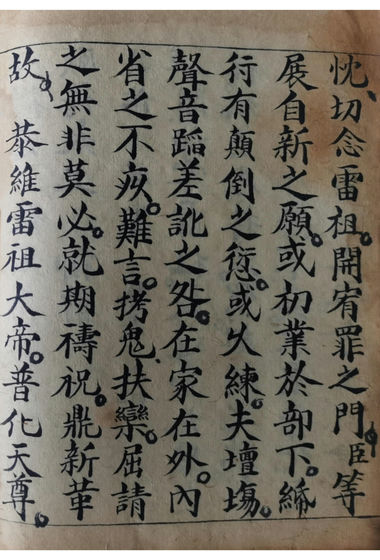 忱、切念雷祖。開宥罪之門。臣等
展自新之願。或初業於部下。締
行有顛倒之愆。或火練夫壇場。
聲音蹈差訛之咎。在家在外。內
省之不疚。難言拷鬼、扶欒。屈請
之無非莫必。就期禱祝。鼎新革
故。恭維雷祖大帝。普化天尊。